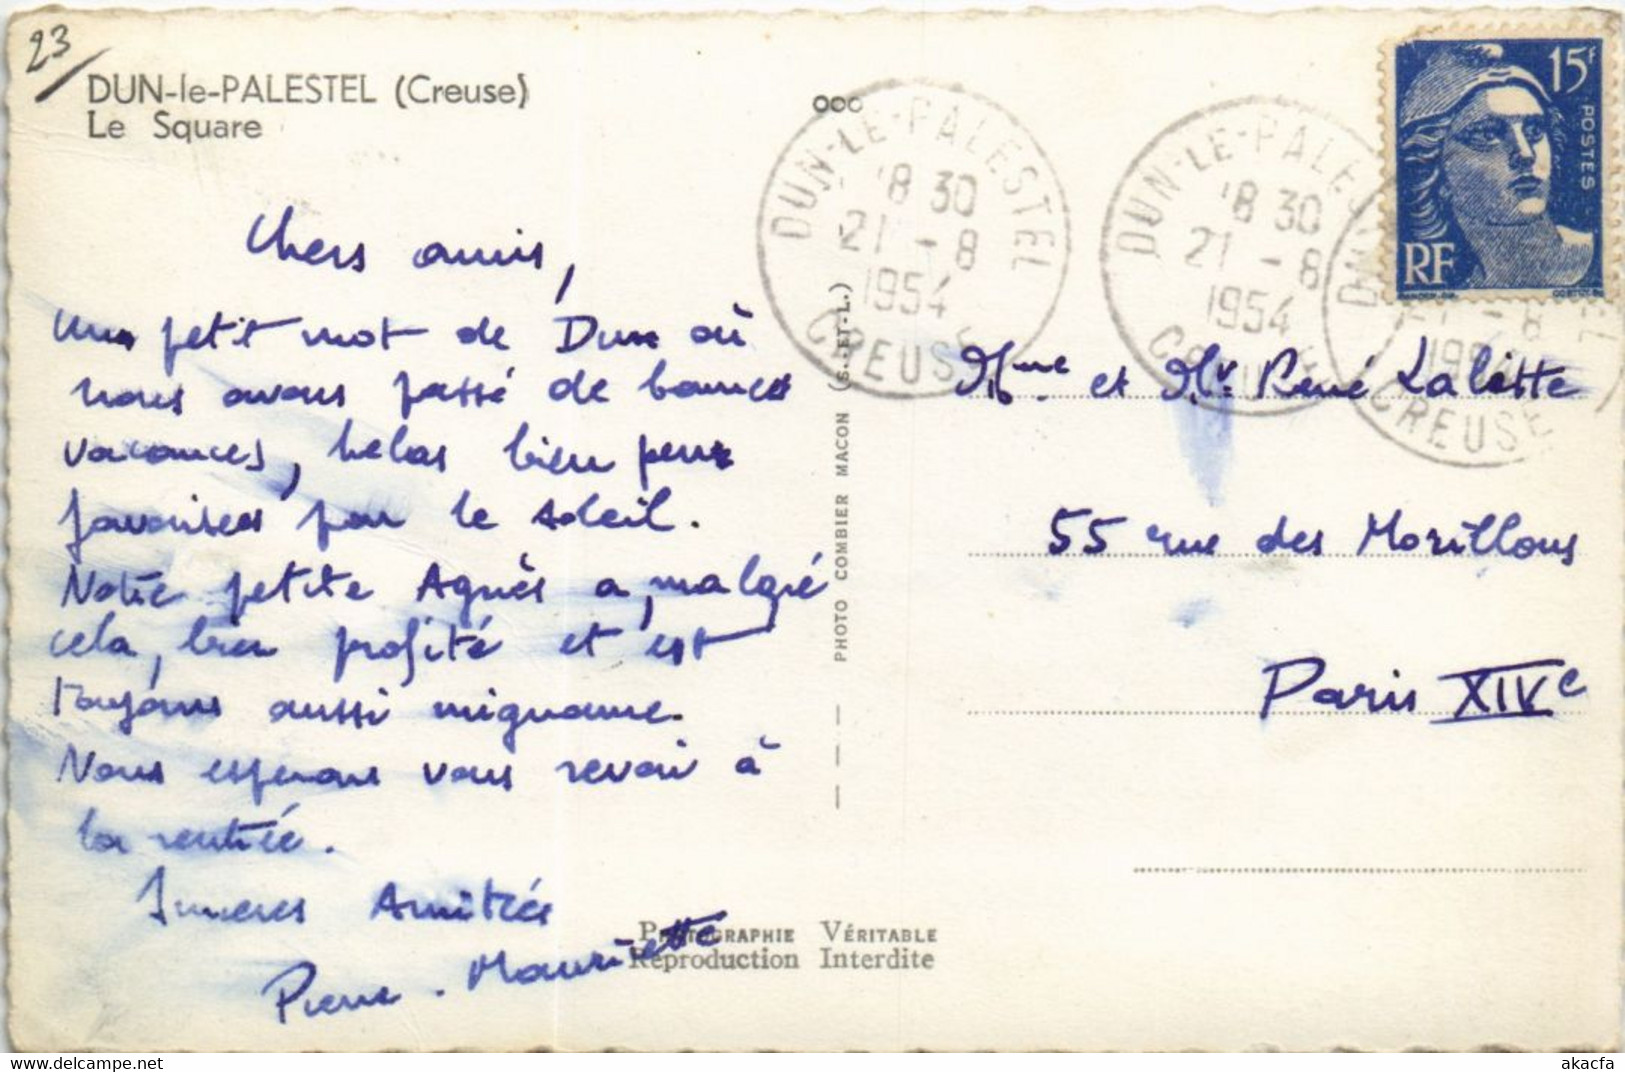 23
DUN-le-PALESTEL (Creuse)
Le Square
Chers amis,
Un petit mot de Dun où
nous avons passé de bonnes
vacances, helas bien peu
favorisées par le soleil.
Notre petite Agnès a, malgré
cela, bien profité et est
toujours aussi mignonne.
Nous esperons vous revoir à
la rentrée.
Sinceres Amitiés
Pierre. Mauricette
PHOTO COMBIER MACON (S.-ET-L.)
PHOTOGRAPHIE VÉRITABLE
Reproduction Interdite
DUN-LE-PALESTEL
18 30
21 - 8
1954
CREUSE
DUN-LE-PALES
18 30
21 - 8
1954
CREUSE
21 - 8
1954
CREUSE
15F
POSTES
RF
Mme et Mr René Laliette
55 rue des Morillons
Paris XIVe
akacfa